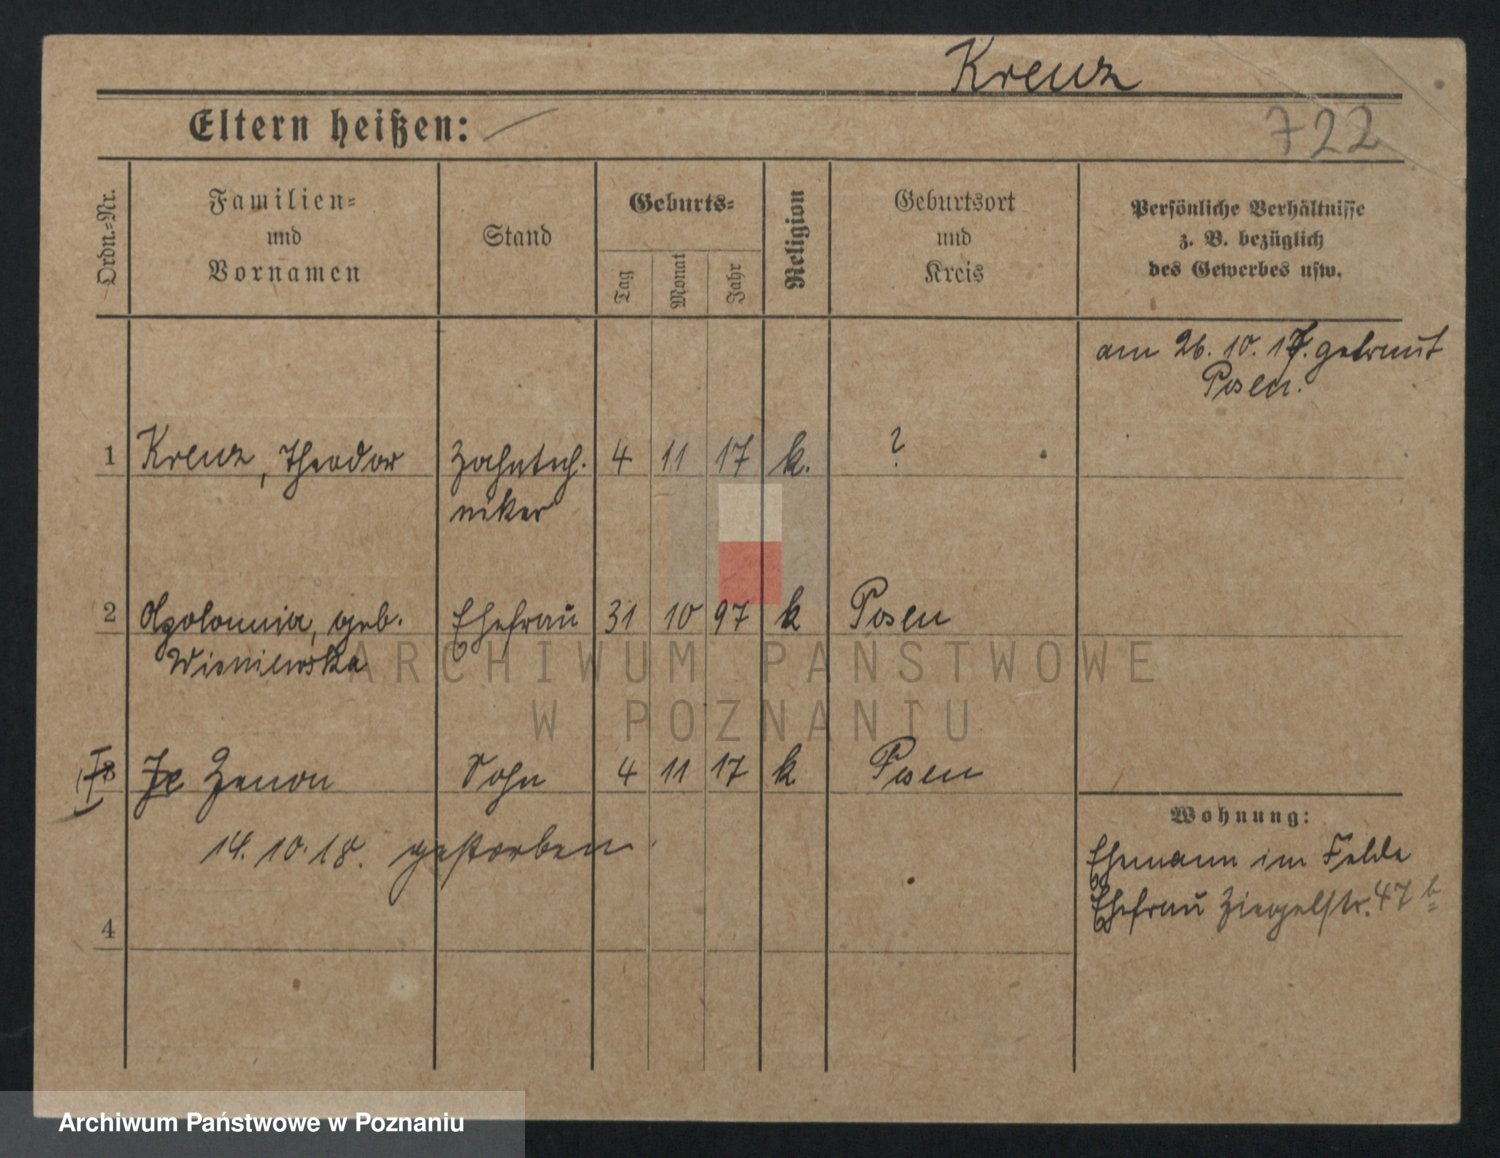 Krenz
722
Eltern heißen: —
Ordn.-Nr.
Familien-
und
Vornamen
Stand
Geburts-
Tag
Monat
Jahr
Religion
Geburtsort
und
Kreis
Persönliche Verhältnisse
z. B. bezüglich
des Gewerbes usw.
am 26. 10. 17. getraut
Posen.
1 Krenz, Theodor Zahntech- 4 11 17 k. ?
niker
2 Apolonnia, geb. Ehefrau 31 10 97 k Posen
Wisniewska
Zenon Sohn 4 11 17 k Posen
14. 10. 18. gestorben
4
Wohnung:
Ehemann im Felde
Ehefrau Ziegelstr. 47 b
ARCHIWUM PAŃSTWOWE
W POZNANIU
Archiwum Państwowe w Poznaniu